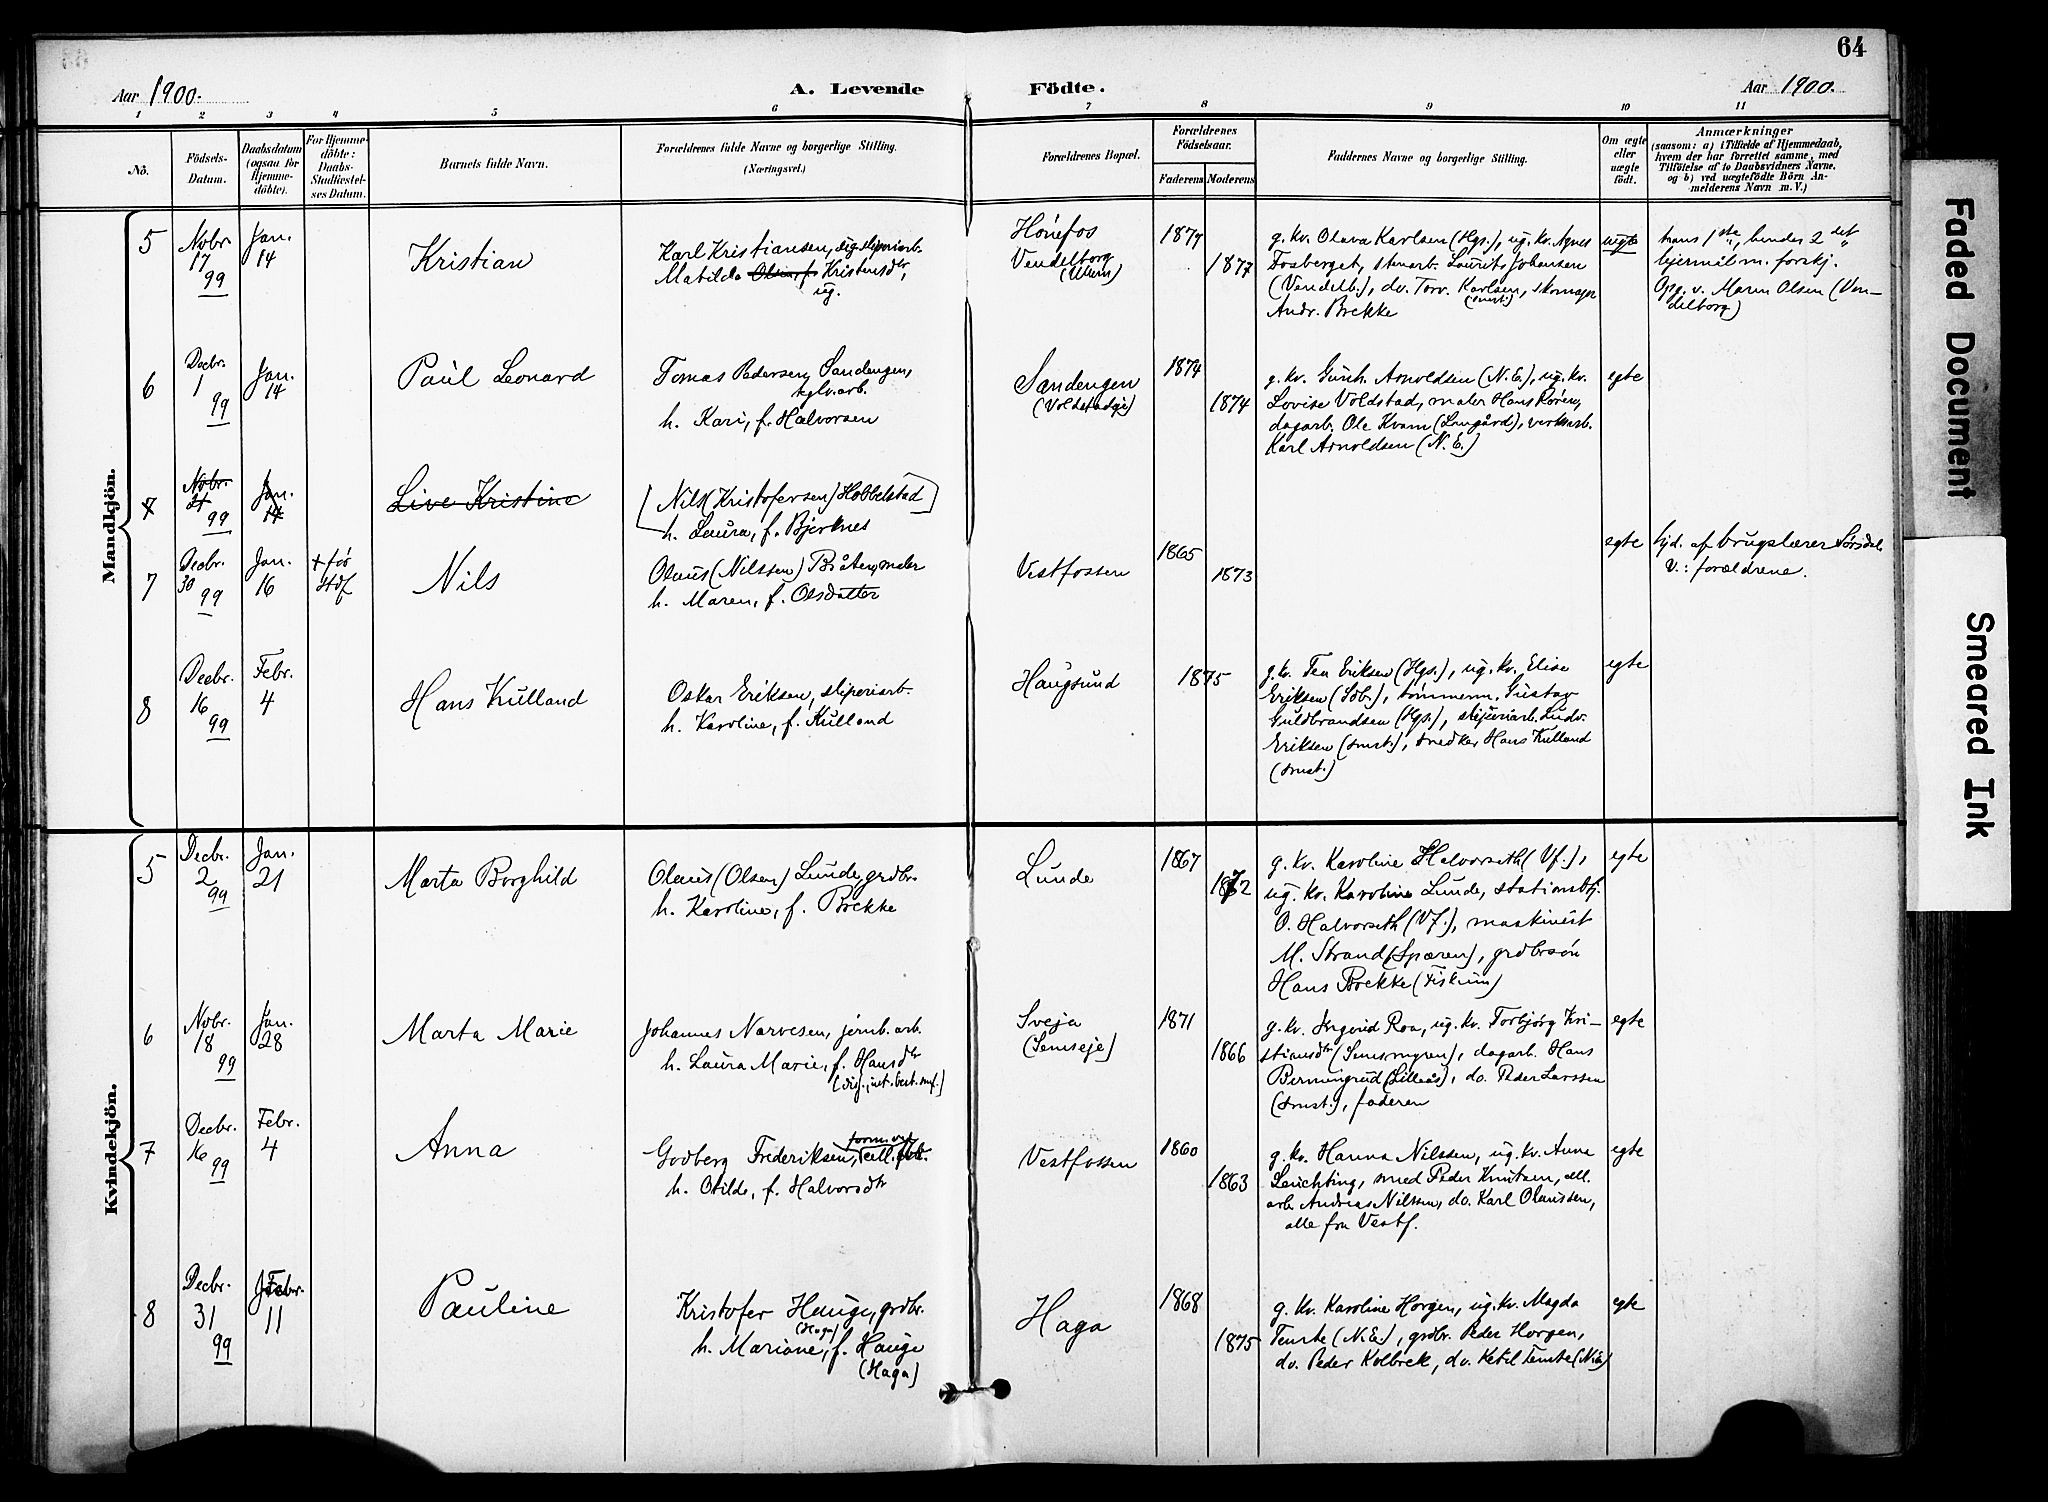 64
Aar 1900.
A. Levende Födte.
Aar 1900.
1 2 3 4 5 6 7 8 9 10 11
No.
Födsels-
Datum.
Daabsdatum
(ogsaa for
Hjemme-
döbte).
For Hjemme-
döbte:
Daabs-
Stadfæstel-
ses Datum.
Barnets fulde Navn.
Forældrenes fulde Navne og borgerlige Stilling.
(Næringsvei.)
Forældrenes Bopæl.
Forældrenes
Födselsaar.
Faderens Moderens
Faddernes Navne og borgerlige Stilling.
Om ægte
eller
uægte
födt.
Anmærkninger
(saasom: a) i Tilfælde af Hjemmedaab,
hvem der har forrettet samme, med
Tilföielse af to Daabsvidners Navne,
og b) ved uægtefödte Börn An-
melderens Navn m. V.)
Mandkjön.
5
Nobr.
17
99
Jan.
14
Kristian
Karl Kristiansen, ug. sliperiarb.
Matilda Kristensdtr,
ug.
Hönefos
Vendelborg
(Ulem)
1879
1877
g. kv. Olava Karlsen (Hgs.), ug. kv. Agnes
Fosberget, stenarb. Laurits Johansen
(Vendelb.), do. Torv. Karlsen, skomager
(smst.)
Andr. Brekke
uegte
hans 1ste, hendes 2det
leiermål m. forskj.
Opg. v. Maren Olsen (Ven-
delborg)
6
Decbr.
1
99
Jan.
14
Paul Leonard
Tomas Pedersen Sandengen,
h. Kari, f. Halvorsen
Sandengen
(Voldstadeje)
1874
1874
g. kv. Gunh. Arnoldsen (N. E.), ug. kv.
Lovise Voldstad, maler Hans Rören,
dagarb. Ole Kvam (Langård), verksarb.
Karl Arnoldsen (N. E.)
egte
7
Nobr.
21
99
Jan.
14
Live Kristine
Nils (Kristofersen) Hobbelstad
h. Laura, f. Bjerknes
7
Decbr.
30
99
Jan.
16
+ för
stdf
Nils
Olaus (Nilssen) Bråten, maler
h. Maren, f. Olsdatter
Vestfossen
1865
1873
egte
hjd. af brugslærer Sörsdal
V.: forældrene.
8
Decbr.
16
99
Febr.
4
Hans Kulland
Oskar Eriksen, sliperiarb.
h. Karoline, f. Kulland
Haugsund
1875
g. kv. Tea Eriksen (Hgs.), ug. kv. Elise
Eriksen (Söb.), tömmerm. Gustav
Guldbrandsen (Hgs.), sliperiarb. Ludv.
Eriksen (smst.), snedker Hans Kulland
(smst.)
egte
Kvindekjön.
5
Decbr.
2
99
Jan.
21
Marta Borghild
Olaus (Olsen) Lunde, grdbr.
h. Karoline, f. Brekke
Lunde
1867
1872
g. kv. Karoline Halvorseth (Vf.),
ug. kv. Karoline Lunde, stationsbtj.
O. Halvorseth (Vf.), maskinist
M. Strand (Spæren), grdbrsön
Hans Brekke (Fiskum)
egte
6
Nobr.
18
99
Jan.
28
Marta Marie
Johannes Narvesen, jernb. arb.
h. Laura Marie, f. Hansdtr
Sveja
(Semseje)
1871
1866
g. kv. Ingvid Roa, ug. kv. Torbjörg Kri-
stiansdtr (Semsmyren), dagarb. Hans
Bermingrud (Lilleås), do. Peder Larssen
(smst.), faderen
egte
7
Decbr.
16
99
Febr.
4
Anna
Godberg Frederiksen,
h. Otilde, f. Halvorsdtr
Vestfossen
1860
1863
g. kv. Hanna Nilssen, ug. kv. Anna
Leuchting, smed Peder Knutsen, cell.
arb. Andreas Nilssen, do. Karl Olaussen,
alle fra Vestf.
egte
8
Decbr.
31
99
Febr.
11
Pauline
Kristofer Hauge, grdbr.
(Haga)
h. Mariane, f. Hauge
(Haga)
Haga
1868
1875
g. kv. Karoline Horgen, ug. kv. Magda
Temte (N. E.), grdbr. Peder Horgen,
do. Peder Kolbrek, do. Ketil Temte (N. E.)
egte
Faded Document
Smeared Ink